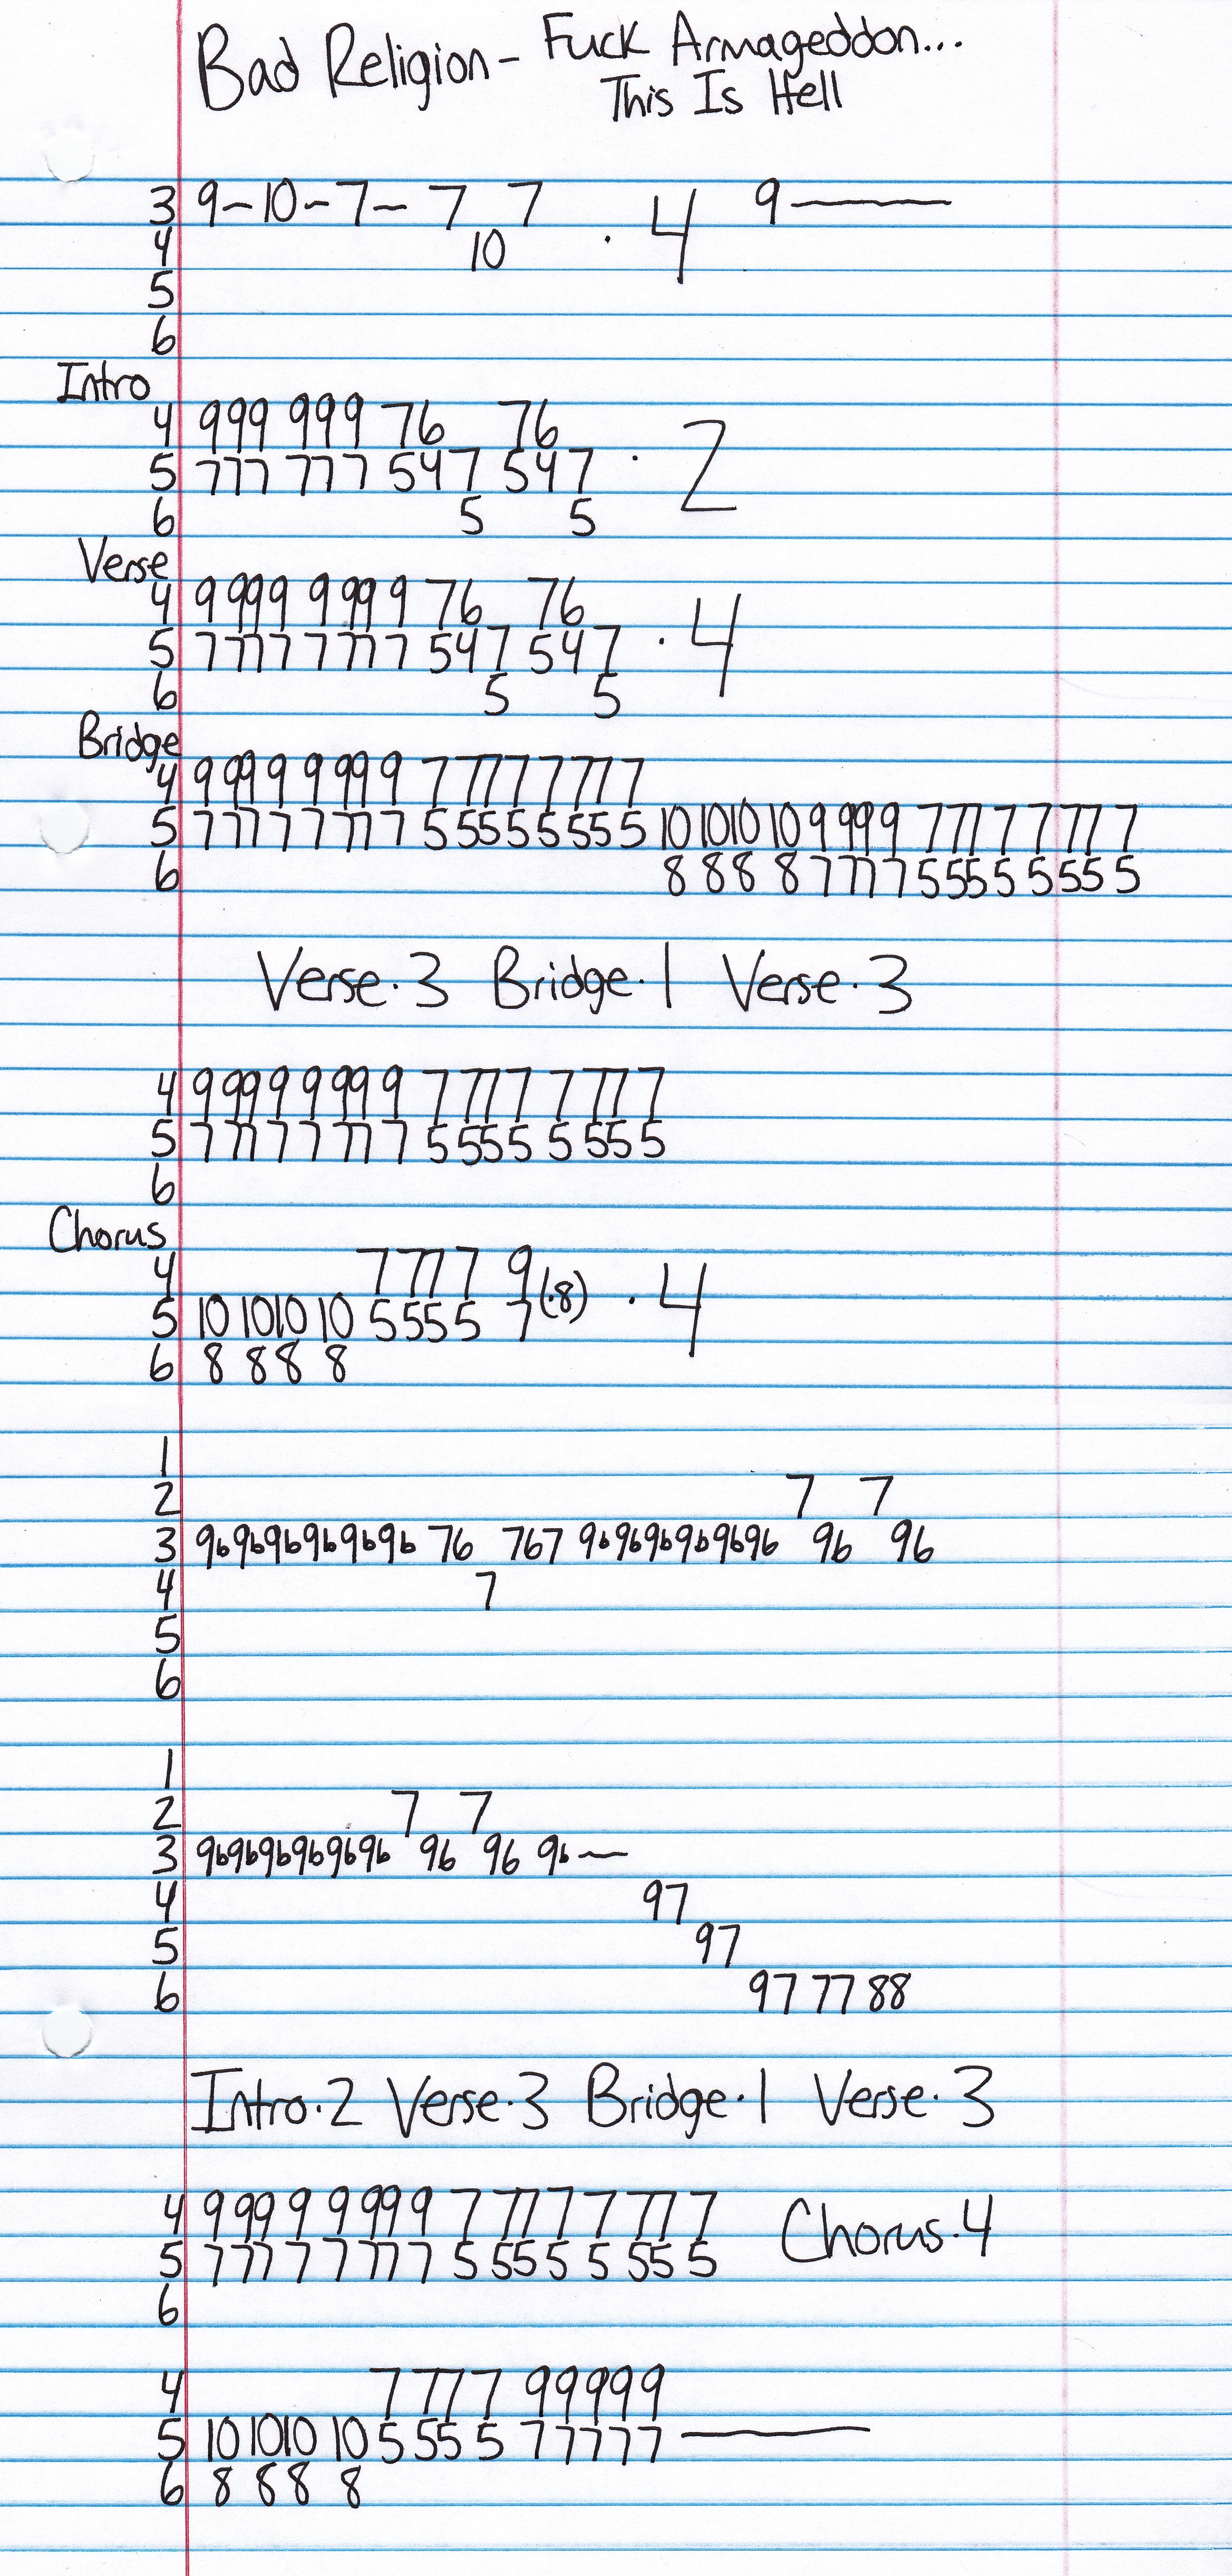 Bad Religion - Fuck Armageddon...
This Is Hell
3 9-10-7- 7 7 . 4 9———
4 10
5
6
Intro
4 999 999 76 76
5 777 777 547 547 . 2
6 5 5
Verse
4 9 999 9 999 9 76 76
5 7 777 7 777 7 547 547 . 4
6 5 5
Bridge
4 9 99 9 9 99 9 7 777 7 777
5 7 77 7 7 77 7 5 55 5 5 55 5 10 1010 10 9 99 9 7 77 7 7 77 7
6 8 88 8 7 77 7 5 55 5 5 55 5
Verse.3 Bridge.1 Verse.3
4 9 99 9 9 99 9 7 77 7 7 77 7
5 7 77 7 7 77 7 5 55 5 5 55 5
6
Chorus
4 7 77 7 9
5 10 1010 10 5 55 5 7 (.8) . 4
6 8 88 8
1
2 7 7
3 969696969696 76 767 969696969696 96 96
4 7
5
6
1
2 7 7
3 969696969696 96 96 96—
4 97
5 97
6 97 77 88
Intro.2 Verse.3 Bridge.1 Verse.3
4 9 99 9 9 99 9 7 77 7 7 77 7 Chorus.4
5 7 77 7 7 77 7 5 55 5 5 55 5
6
4 7 77 7 99999
5 10 1010 10 5 55 5 77777———
6 8 88 8